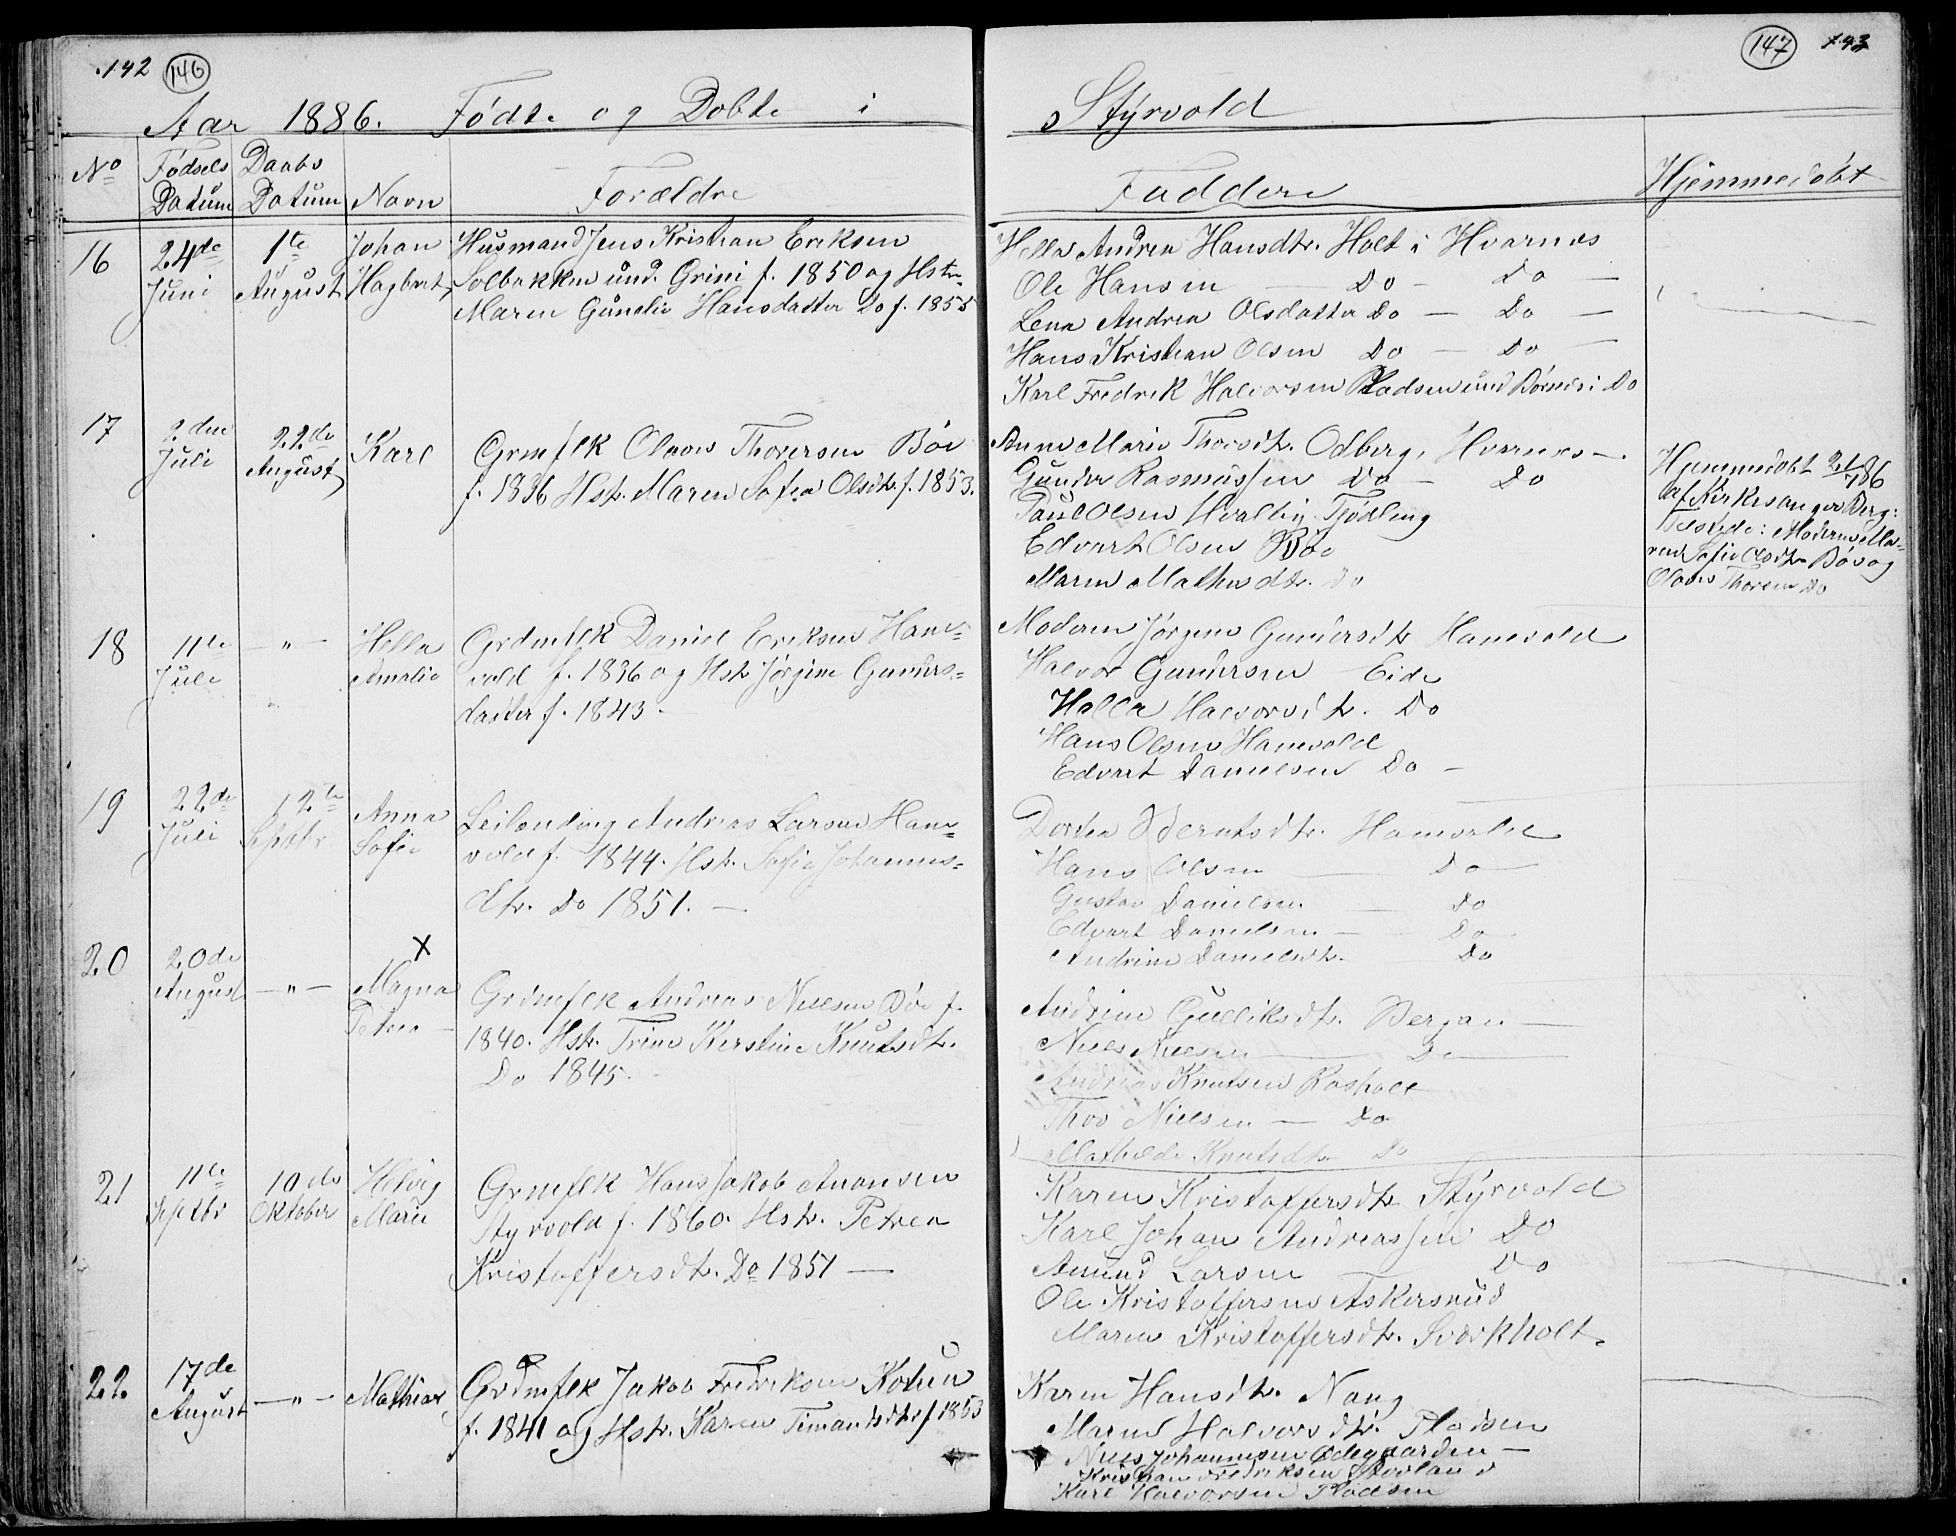 142 146
Aar 1886. Födte og Döbte i
No Födsels Datum Daabs Datum Navn Forældre
16 24de Juni 1te August Johan Hagbart
Husmand Jens Kristian Eriksen
Solbakken und. Grini f. 1850 og Hstr.
Maren Gunelie Hansdatter Do f. 1855
17 2den Juli 22de August Karl
Grmflk Olaves Thoresen Böe
f. 1836 Hstr. Maren Sofie Olsdtr. f. 1853.
18 11te Juli - " - Hella Amalie
Grdmflk Daniel Eriksen Hane-
vold f. 1836 og Hstr Jörgine Gunders-
datter f. 1843.
19 22de Juli 12te Septbr Anna Sofie
Leilending Andreas Larsen Hane-
vold f. 1844. Hstr. Sofie Johannes-
dtr. Do 1851. -
20 20de August - " - X Magna Petrea
Grdmflk Andreas Nielsen Böe f.
1840. Hstr. Trine Kerstine Knutsdtr.
Do 1845.
21 11te Septbr 10de Oktober Helvig Marie
Grmflk Hans Jakob Anonsen
Styrvold f. 1860. Hstr. Petrea
Kristoffersdtr. Do 1851 -
22. 17de August - " - Mathias
Grdmflk Jakob Fredriksen
f. 1841 og Hstr. Karen Timandsdtr f 1853
147 143
Styrvold
Faddere Hjemmedöbt
Hella Andrea Hansdtr. Holt i Hvarnes
Ole Hansen - Do - Do -
Lena Andrea Olsdatter Do - Do -
Hans Kristian Olsen Do - Do -
Karl Fredrik Halvorsen Pladsen und Börnes i Do
Anne Marie Thorsdtr. Odberg, Hvarnes -.
Gunder Rasmussen Do - Do
Paul Olsen Hvalby Tjödling
Edvart Olsen Böe
Maren Mathisdtr. Do
Hjemmedöbt 21/7 86
af Kirkesanger Berg:
Tilstede: Moderen Ma-
ren Sofie Olsdtr Böe og
Olaves Thoresen Do
Moderen Jörgine Gundersdtr Hanevold
Halvor Gundersen Eide
Hella Halvorsdtr. Do
Hans Olsen Hanevold
Edvart Danielsen Do -
Dortea Berntsdtr. Hanevold
Hans Olsen - Do -
Gustav Danielsen - Do
Edvart Danielsen - Do
Andrine Danielsdtr. Do
Andrine Gulliksdtr. Bergan -
Niels Nielsen - Do -
Andreas Knutsen Rasholt
Thov Nielsen - Do
Mathilde Knutsdtr Do
Karen Kristoffersdtr. Styrvold
Karl Johan Andreassen Do
Amund Larsen Do
Ole Kristoffersen Askersrud
Maren Kristoffersdtr. Sværkholt
Karen Hansdtr. Nang
Maren Halvorsdtr. Pladsen
Niels Johannesen Ödegaarden -
Kristian Fredriksen Skovland
Karl Halvorsen Pladsen